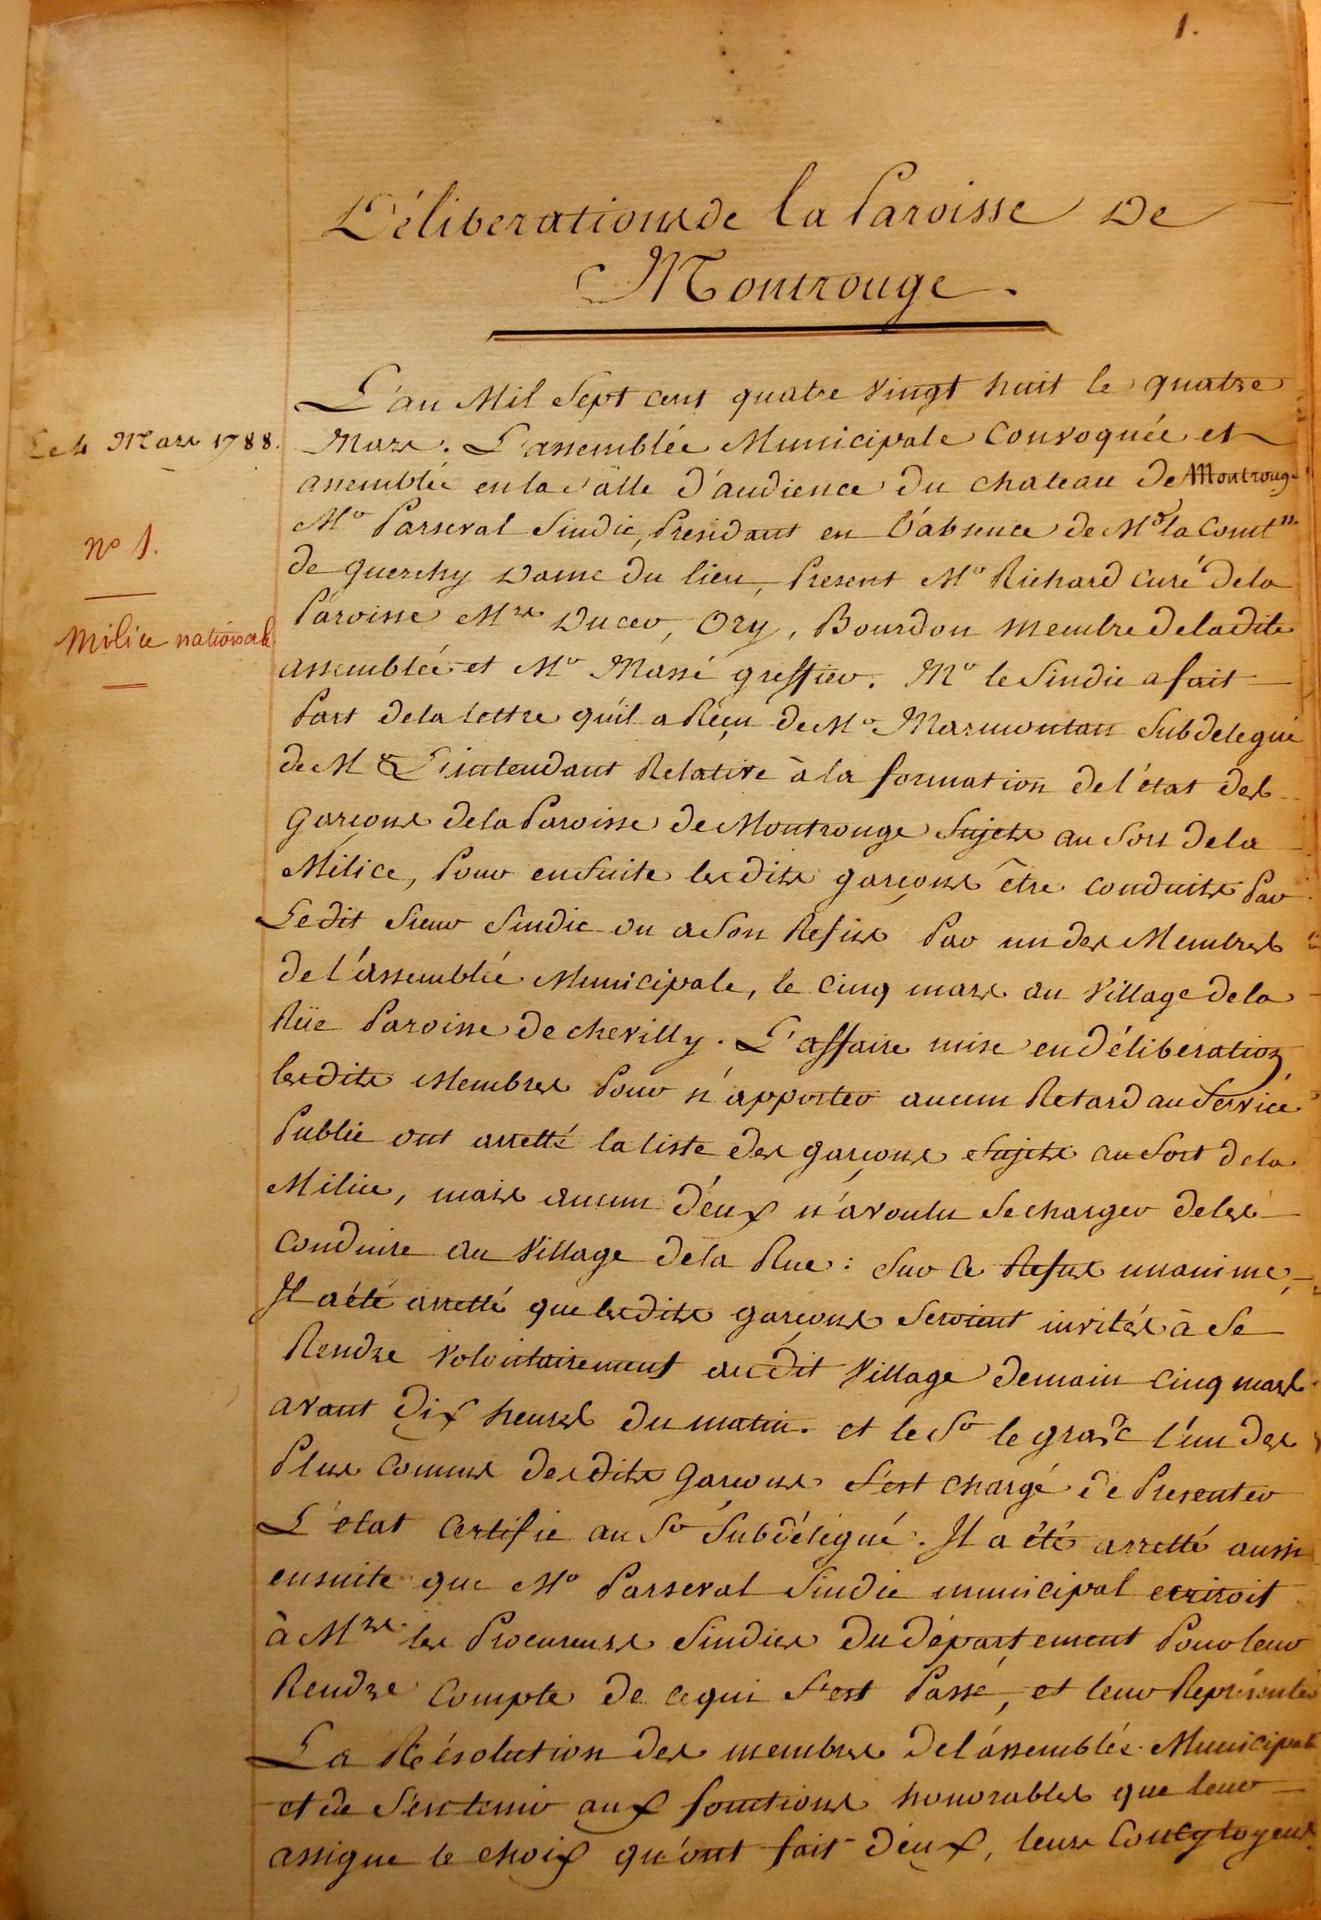 1.
Déliberations de la Paroisse De
Montrouge.
L'an Mil Sept cent quatre vingt huit le quatre
Le 4 Mars 1788.
Mars. L'assemblée Municipale Convoquée et
assemblée en la Salle d'audience du chateau de Montrouge
Mr Parseval Sindic, Présidant en l'absence de Me la Comtsse
n° 1.
de Guerchy Dame du lieu, Présent Mr Richard curé de la
Paroisse Mrs Ducer, Ory, Bourdon Membre de la dite
Milice nationale
assemblée et Mr Massé greffier. Mr le Sindic a fait
Part de la lettre qu'il a Réçu de Mr Marmontan Subdelegué
de M L'intendant Relative à la formation de l'état des
Garçons de la Paroisse de Montrouge Sujets au Sort de la
Milice, Pour ensuite lesdits garçons être conduits Par
Ledit Sieur Sindic ou a Son Refus Par un des Membres
de l'assemblée Municipale, le cinq mars au Village de la
Rüe Paroisse de chevilly. L'affaire mise en déliberation
lesdits Membres Pour n'apporter aucun Retard au Service
Public ont arretté la liste des garçons Sujets au Sort de la
Milice, mais aucun d'eux n'a voulu Se charger de les
Conduire au Village de la Rue : Sur ce Refus unanime,
Il a été arretté que lesdits garçons Seroient invités à Se
Rendre volontairement au dit Village demain cinq mars
avant dix heures du matin. et le Sr le grand l'un des
Plus connus desdits Garçons S'est chargé de Presenter
L'état Certifié au Sr Subdélégué. Il a été arretté aussi
ensuite que Mr Parseval Sindic municipal ecriroit
à Mrs les Procureurs Sindics du département Pour leur
Rendre Compte de ce qui S'est Passé, et leur Représenter
La Résolution des membres de l'assemblée Municipale
et de S'en tenir aux fonctions honorables que leur
assigne le choix qu'ont fait d'eux, leurs Concytoyens